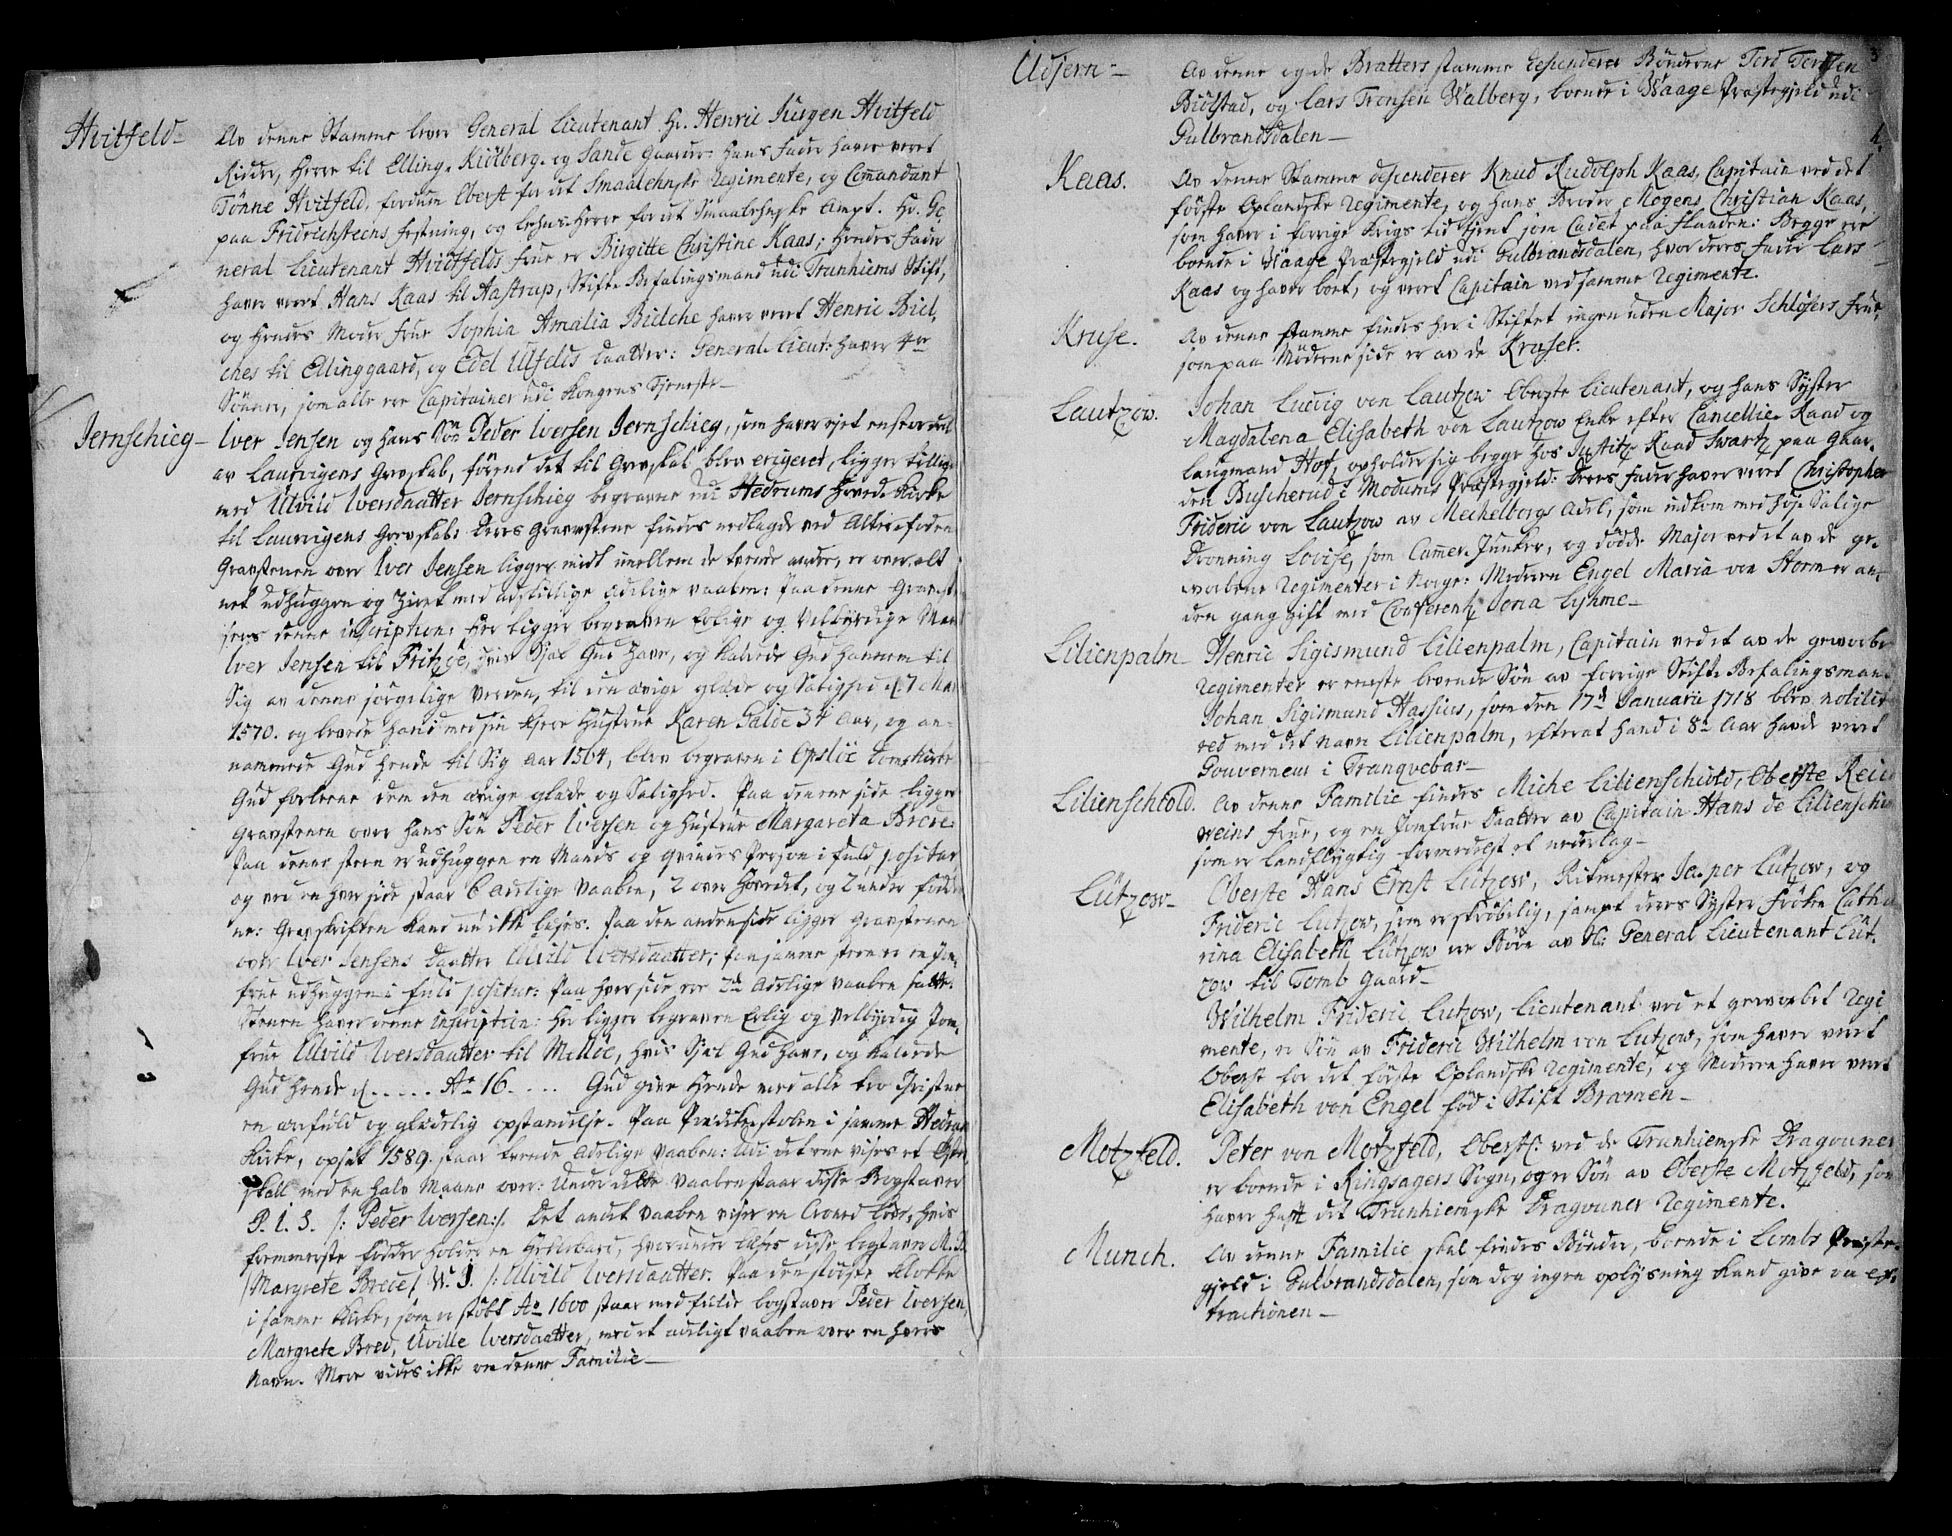 Hvitfeld-
Av denne Stamme lever General Lieutenant Hr. Henric Jürgen Hvitfeld
Ridder, Herre til Elling, Kiölberg, og Sande Gaarder: Hans Fader haver veret
Tönne Hvitfeld, fordum Oberst for det Smaalehnske Regimente, og Commandant
paa Fridrichsteens Festning, og Lehns-Herre for det Smaalehnske Ampt. Hr. Ge,
neral Lieutenant Hvidtfelds Frue er Birgitte Christine Kaas; Hendes Fader
haver veret Hans Kaas til Hastrup, Stifts Befalingsmand udi Trunhiems Stift,
og Hendes Moder Frue Sophia Amalia Bielche haver veret Henric Biel,
ches til Ellinggaard, og Edel Ulfelds Daatter: General-Lieut: haver 4re
Sönner, som alle ere Capitainer udi Kongens Tjeneste-
Jernschieg-
Iver Jensen og hans Sön Peder Iversen Jernschieg, som haver ejet en stor deel
av Laurvigens Grevskab, förend det til Grevskab blev erigeret, ligger tillige
med Ulvild Iversdaatter Jernschieg begravne udi Hedrums Hoved-Kirke
til Laurvigens Grevskab: Deres Gravstene findes nedlagde ved Alter-foden
Gravstenen over Iver Jensen ligger midt imellem de tvende andre, er over alt
net udhuggen og ziret med adskillige Adelige Vaaben: Paa denne Gravst.
sees denne inscription: Her ligger begraven Erlige og Velbyrdige Man
Iver Jensen til Fritzöe, hvis Sjæl Gud have, og kalede Gud hannem til
Sig av denne sörgelige Verden, til den ævige glæde og Salighed d. 7 Maj
1570. og levede hand med sin kjere Hustrue Karen Galde 34 Aar, og an-
nammede Gud hende til Sig Aar 1564, blev begraven i Opslöe Domkirke
Gud forleene dem den ævige glæde og Salighed. Paa den ene side ligger
Gravstenen over hans Sön Peder Iversen og Hustrue Margareta Brede:
Paa denne steen er udhuggen en Mands og Qvindes Person i fuld positur
og ved en hver side staar 6 Adelige Vaaben, 2 over Hovedet, og 2 under födder
ne: Gravskriften kand nu ikke læses. Paa den anden side ligger Gravstenen
over Iver Jensens Daatter Ulvild Iversdaatter; paa samme steen er en Jom,
frue udhuggen i fuld positur: Paa hver side ere 2de Adelige Vaaben satte.
Stenen haver denne inscription: Her ligger begraven Erlig og Velbyrdig Jom,
frue Ulvild Iversdaatter til Melöe, hvis Sjæl Gud have, og kalede
Gud hende d. . . . . . Ao 16. . . . Gud give hende med alle tro Christne
en ærefuld og glædelig opstandelse. Paa Prædikestolen i samme Hedrum
Kirke, opsat 1589. staar tvende Adelige Vaaben: Udi det ene vises et
skall med en halv Maane over: Under dette Vaaben staar disse Bogstaver
P. I. S. /: Peder Iversen:/. Det andet Vaaben viser en Croned Löve, hvis
forrmerste födder holder en Hellebard, hvorunder læses disse bogstaver M. B.
/Margrete Brede/ W. I. /: Ulvild Iversdaatter. Paa den störste Klokke
i samme Kirke, som er stöbt Ao 1600 staar med fulde bogstaver Peder Iversen,
Margrete Bred, Uville Iversdaatter, med et adeligt Vaaben over en hvers
Navn. Mere vides ikke om denne Familie-
3
Udjern-
Av denne og de Bratters stamme descenderer Bönderne Tord Tordsen
Bidlstad, og Lars Tronsen Walberg, boende i Waage Præstegjeld udi
Gulbrandsdalen-
4.
Kaas.
Av denne Stamme descenderer Knud Rudolph Kaas, Capitain ved det
förste Oplandske Regimente, og hans Broder Mogens Christian Kaas,
som haver i forrige Krigs tid tjent som Cadet paa Flaaden: Begge ere
boende i Waage Præstegjeld udi Gulbrandsdalen, hvor deres Fader Lars
Kaas og haver boet, og veret Capitain ved samme Regimente.
Kruse.
Av denne stamme findes her i Stiftet ingen uden Major Schlösers Frue,
som paa Möderne side er av de Kruser.
Lautzow.
Johan Ludvig von Lautzow Oberste Lieutenant, og hans Syster
Magdalena Elisabeth von Lautzow Enke efter Cancellie-Raad og
Laugmand Hof, opholder sig begge hos Justitz Raad Swartz paa Gaar-
den Buscherud i Modums Præstegjeld: Deres Fader haver veret Christopher
Frideric von Lautzow av Mechelborgs Adel, som indkom med Höj-Salige
Dronning Lovise, som Cammer-Junker, og dödde Major ved et av de ge-
worbene Regimenter i Norge: Moderen Engel Maria von Storm er an-
den gang gift med Conferentz Jena Lyhme-
Lilienpalm-
Henric Sigismund Lilienpalm, Capitain ved et av de geworbe
Regimenter er eneste levende Sön av forrige Stifts Befalingsman
Johan Sigismund Hassius, som den 17de Januarii 1718 blev nobilite
red med det navn Lilienpalm, efterat hand i 8te Aar havde veret
Gouverneur i Tranqvebar-
Lilienschiold.
Av denne Familie findes Miche Lilienschiold, Oberste Reich
weins Frue, og en Jomfrue Daatter av Capitain Hans de Lilienschio
som er landflygtig formedelst et nederlag-
Lützow-
Oberste Hans Ernst Lützow, Ritmester Jasper Lützow, og
Frideric Lutzow, som er skröbelig, sampt deres Syster Fröken Catha
rina Elisabeth Lützow ere Börn av Sl: General Lieutenant Lüt,
zow til Tomb Gaard-
Wilhelm Frideric Lutzow, Lieutenant ved et geworbet Regi
mente, er Sön av Frideric Wilhelm von Lutzow, som haver veret
Oberst for det förste Oplandske Regimente, og Moderen haver veret
Elisabeth von Engel föd i Stift Bræmen-
Motzfeld.
Peter von Motzfeld, Oberstl: ved de Trunhiemske Dragouner
er boende i Ringsagers Sogn, og er Sön av Oberste Motzfeld, som
haver haft det Trunhiemske Dragouner Regimente.
Munch.
Av denne Familie skal findes Bönder, boende i Lombs Præste-
gjeld i Gulbrandsdalen, som dog ingen oplysning kand give om ex-
tractionen-